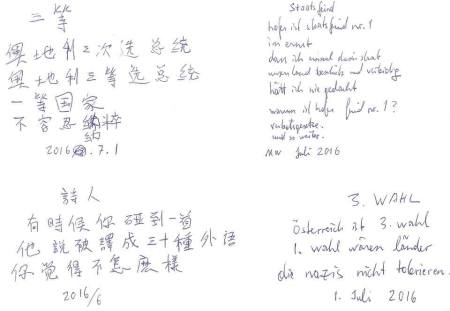 三等
奥地利三次选总统
奥地利三等选总统
一等国家
不容忍纳粹
2016.7.1
Staatsfeind
hofer ist staatsfeind nr. 1
im ernst
dass ich einmal staat
und
hätt ich nie gedacht
warum ist hofer feind nr. 1?
verbotsgesetze.
und so weiter.
MW Juli 2016
詩人
有時候你碰到一首
他說被譯成三十種外语
你觉得不怎麽樣
2016/6
3. WAHL
Österreich ist 3. wahl
1. wahl wären länder
die nazis nicht tolerieren.
1. Juli 2016